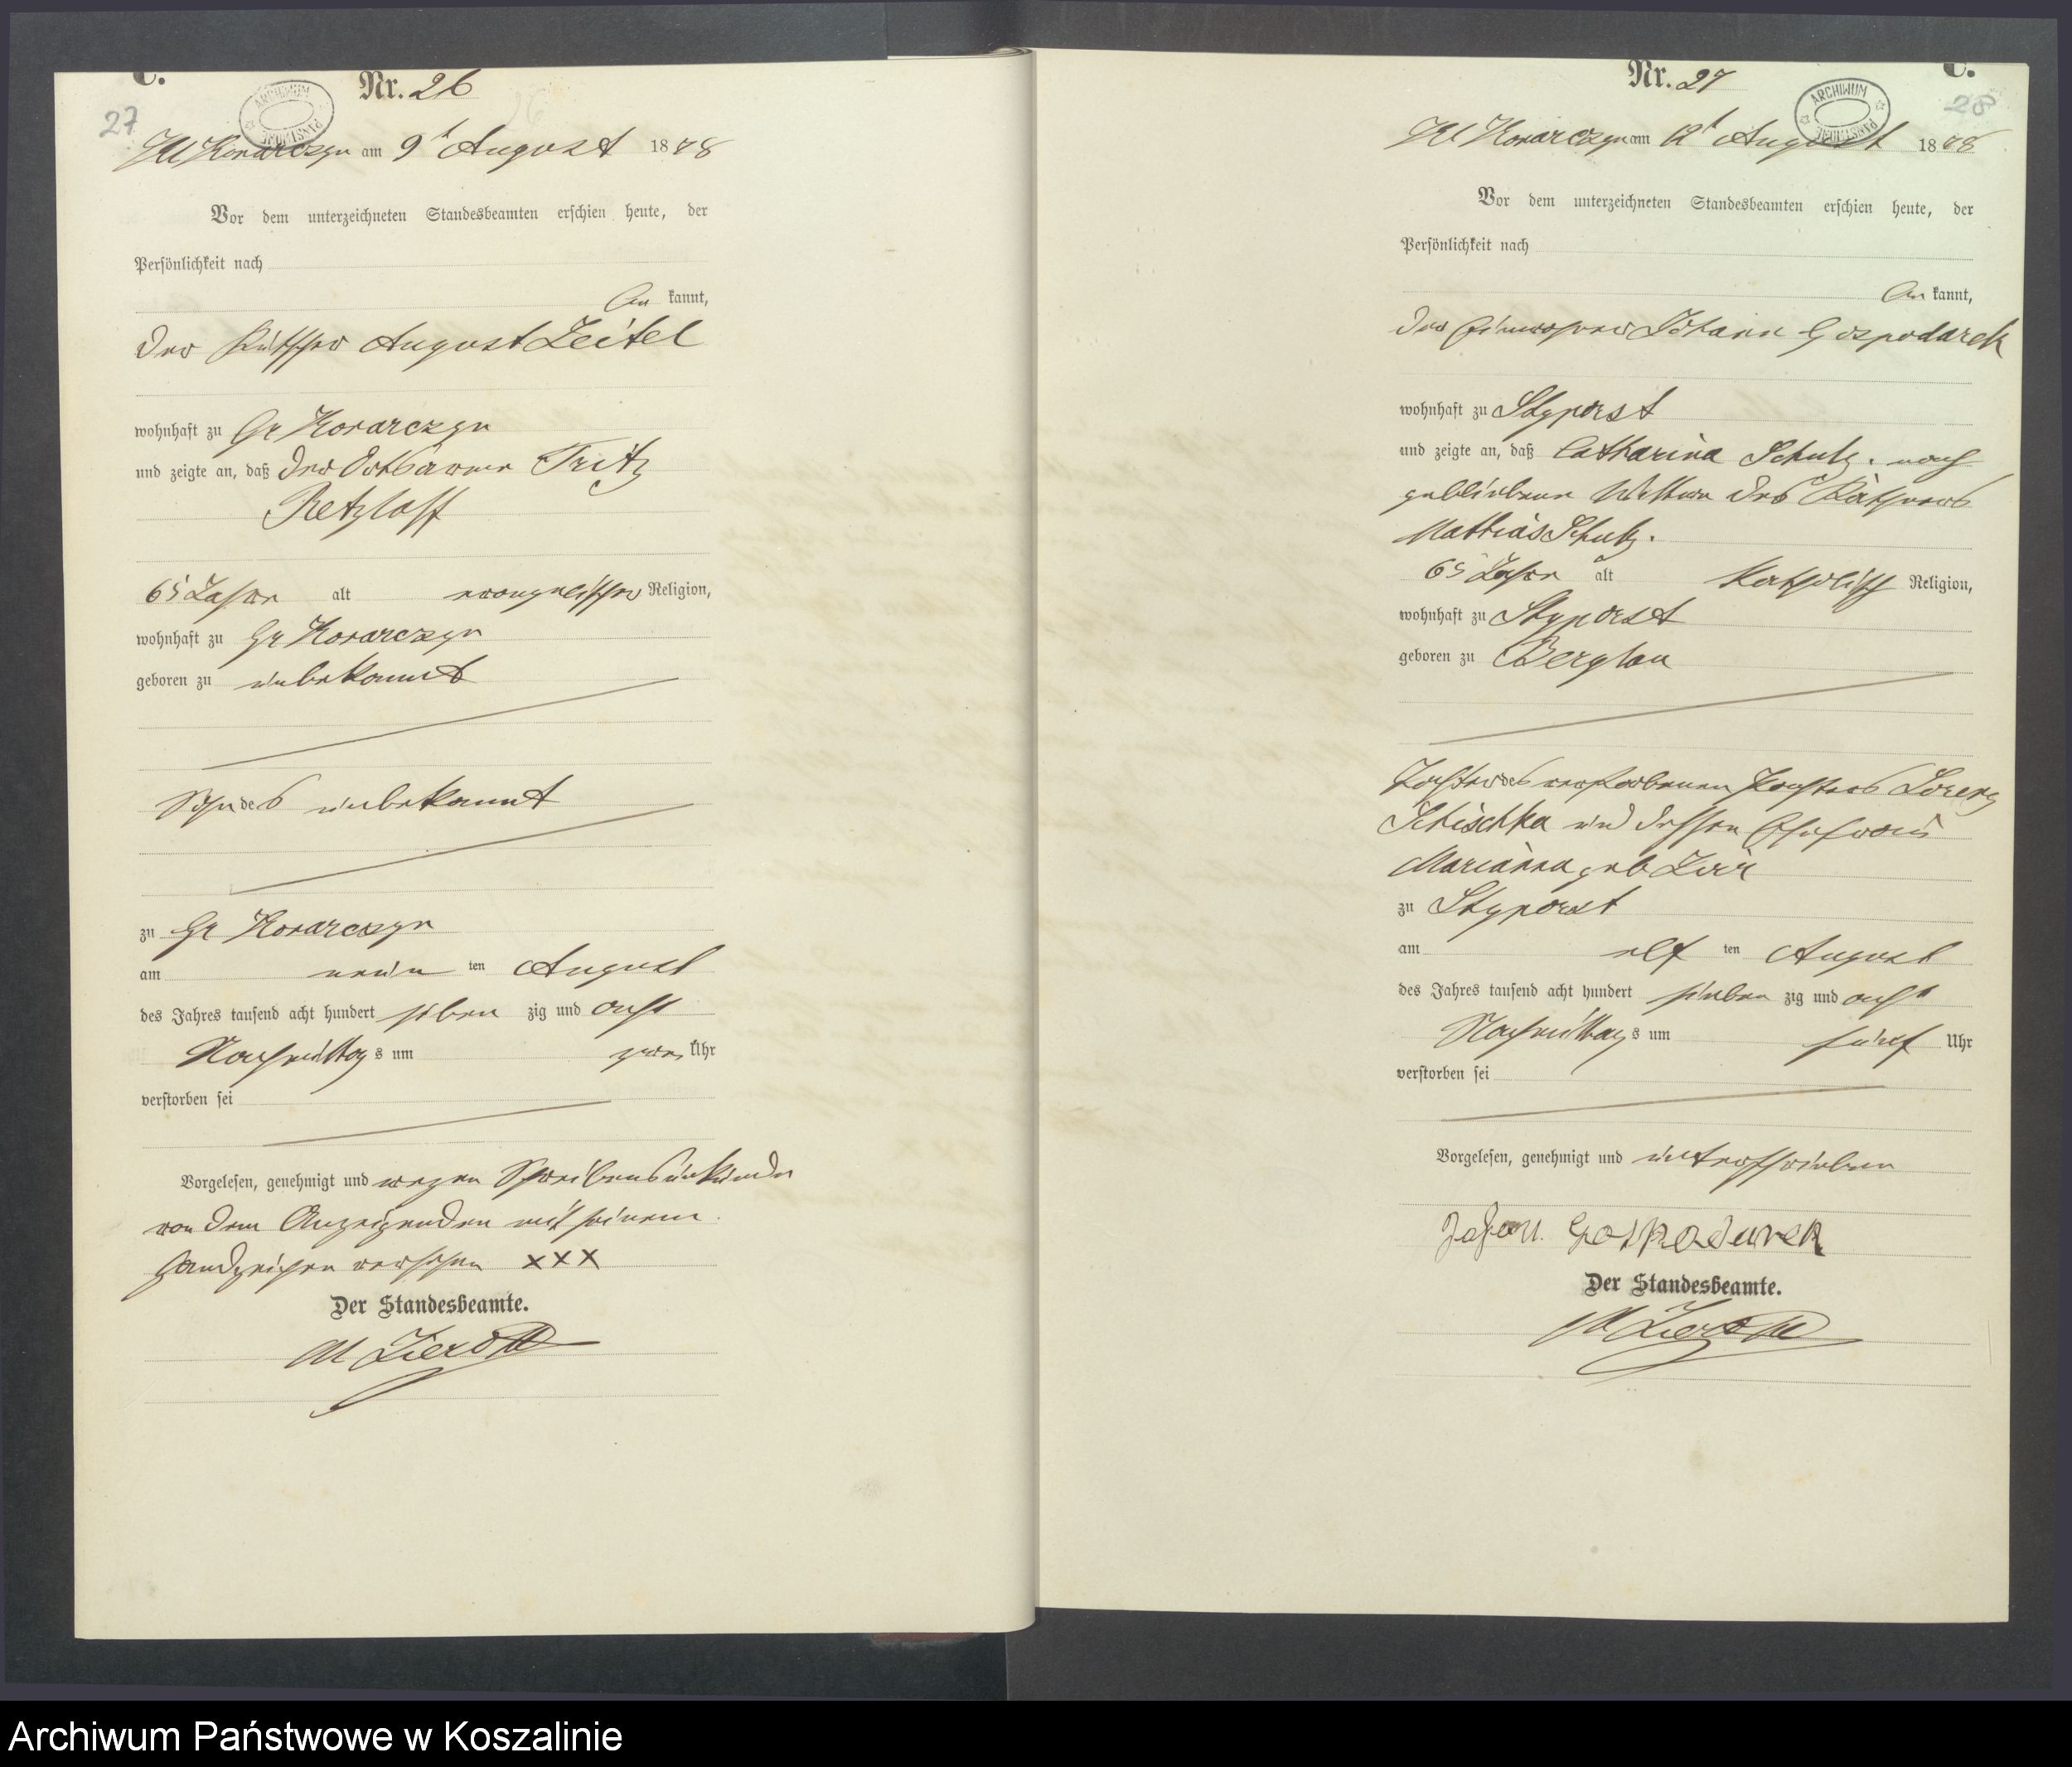 C.
Nr. 26
27
ARCHIWUM PAŃSTWOWE
Kl Konarczyn am 9t August 1878
Vor dem unterzeichneten Standesbeamten erschien heute, der
Persönlichkeit nach
be kannt,
der Kutscher August Zeitel
wohnhaft zu Gr Konarczyn
und zeigte an, daß der Ortsarme Fritz
Retzlaff
65 Jahr alt evangelischer Religion,
wohnhaft zu Gr Konarczyn
geboren zu unbekannt
Sohn des unbekannt
zu Gr Konarczyn
am neun ten August
des Jahres tausend acht hundert sieben zig und acht
Nachmittags um zwei Uhr
verstorben sei
Vorgelesen, genehmigt und wegen Schreibensunkunde
von dem Anzeigenden mit seinem
Handzeichen versehen XXX
Der Standesbeamte.
C.
Nr. 27
28
ARCHIWUM PAŃSTWOWE
Kl Konarczyn am 12t August 1878
Vor dem unterzeichneten Standesbeamten erschien heute, der
Persönlichkeit nach
be kannt,
der Einwohner Johann Gospodarek
wohnhaft zu Sbyporst
und zeigte an, daß Catharina Schulz, nach
gebliebene Wittwe des Käthners
Mathias Schulz.
65 Jahr alt katholisch Religion,
wohnhaft zu Sbyporst
geboren zu Berglau
Tochter des verstorbenen Pächters Lorenz
Schischka und dessen Ehefrau
Marianna geb
zu Sbyporst
am elf ten August
des Jahres tausend acht hundert sieben zig und acht
Nachmittags um fünf Uhr
verstorben sei
Vorgelesen, genehmigt und unterschrieben
Johann Gospodarek
Der Standesbeamte.
Archiwum Państwowe w Koszalinie